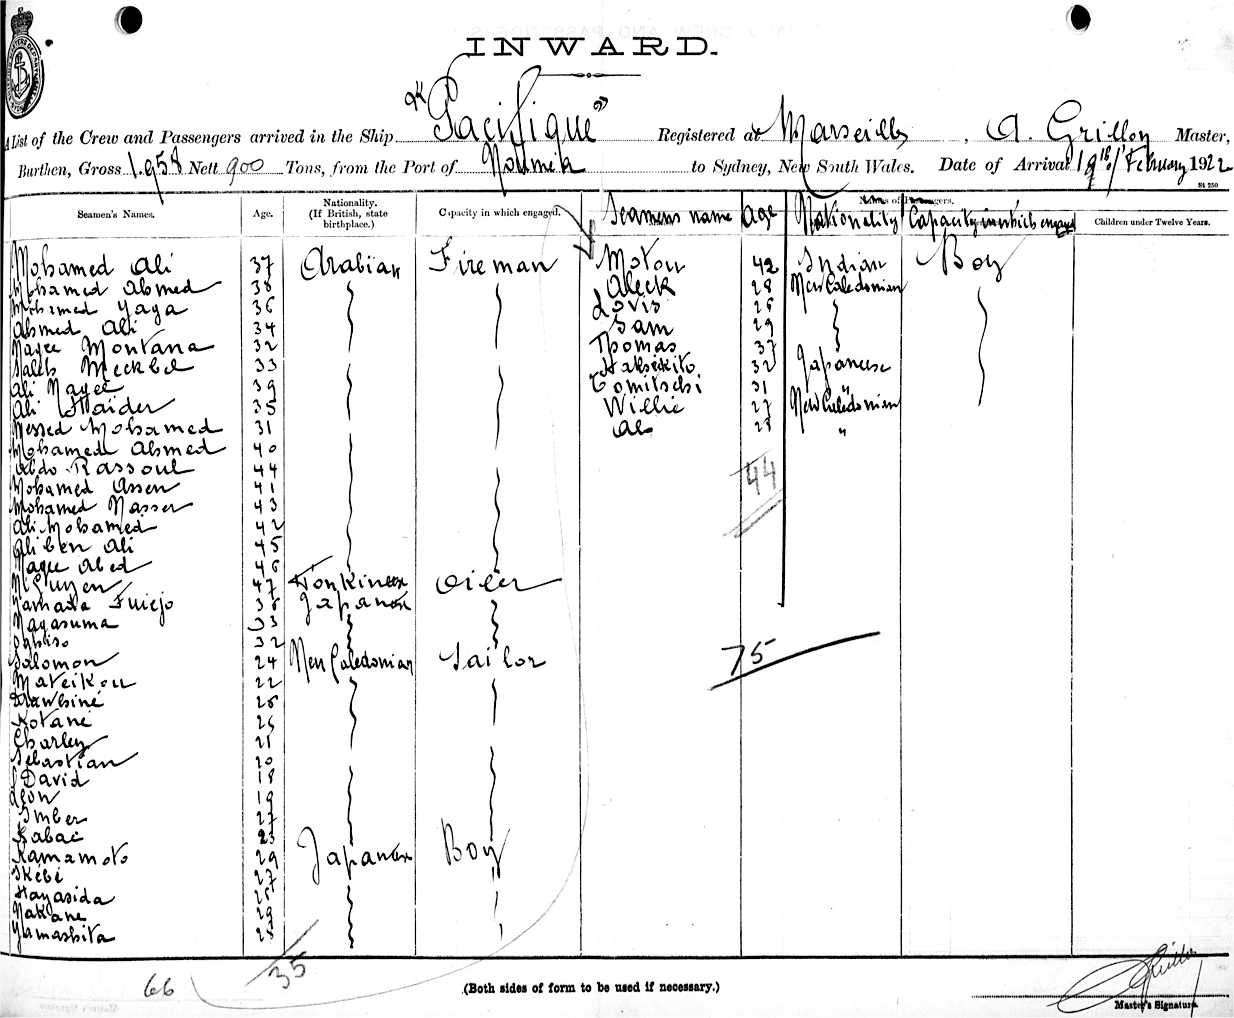 INWARD.
A List of the Crew and Passengers arrived in the Ship "Pacifique" Registered at Marseilles, A. Grilloy Master,
Burthen, Gross 1.958 Nett 900 Tons, from the Port of Noumea to Sydney, New South Wales. Date of Arrival 19th February 1922
St 250
Seamen's Names. Age. Nationality. (If British, state birthplace.) Capacity in which engaged. Seamens name Age Nationality Capacity in which engaged Children under Twelve Years.
Mohamed Ali 37 Arabian Fireman Motou 42 Indian Boy
Mohamed Ahmed 38 Aleck 28 New Caledonian
Mohamed Yaya 36 Lovis 26
Ahmed Ali 34 Sam 29
Nagee Montana 32 Thomas 37
Saleh Meckbel 33 Hakiskito 32 Japanese
Ali Nagee 39 Tomitschi 31 "
Ali Haider 35 Willie 27 New Caledonian
Messed Mohamed 31 Ab 28 "
Mohamed Ahmed 40
Abdo Rassoul 44
Mohamed Assen 41 44
Mohamed Nasser 43
Ali Mohamed 42
Ali ben Ali 45
Nagee Abed 46
N'Guyen 47 Tonkinese Oiler
Yamada Fuicjo 36 Japanese
Nagasuma 33
32
Salomon 24 New Caledonian Sailor 75
Mateikou 22
26
Kotane 26
Charley 21
Sebastian 20
David 18
Leon 19
Imber 27
Kabai 23
Kamamoto 29 Japanese Boy
Ikebé 27
Hayasida 25
Nakane 29
Yamashita 28
66 35
(Both sides of form to be used if necessary.)
Master's Signature.